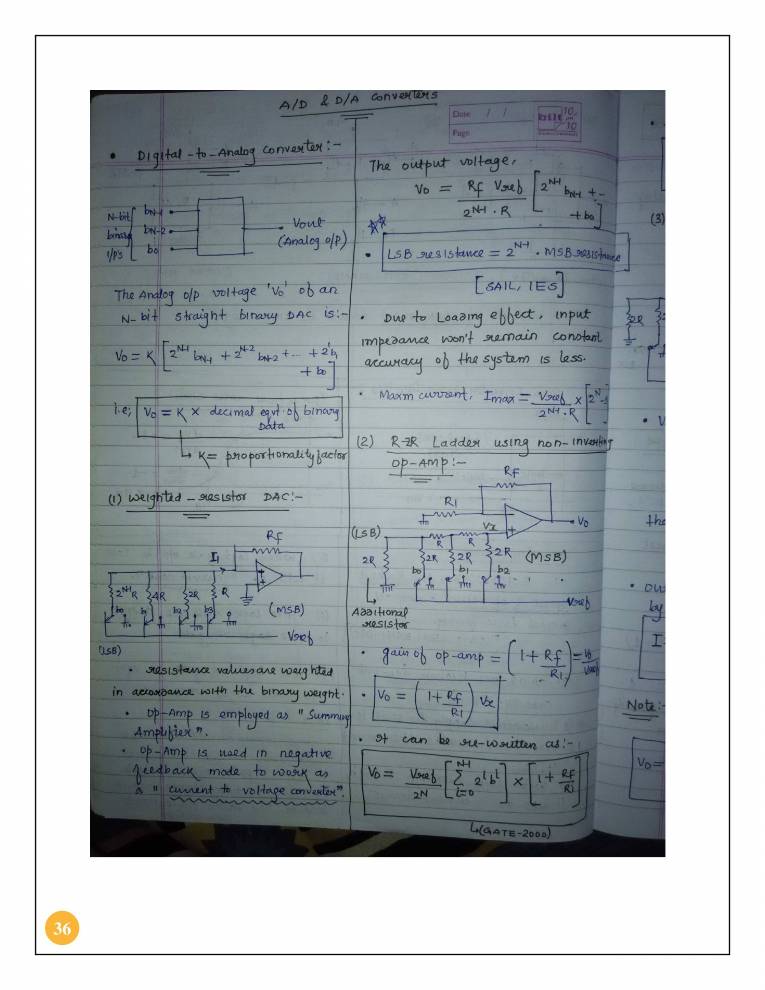 A/D & D/A Converters
Date / /
Page
• Digital-to-Analog Converter:-
N-bit
binary
i/p's
bN-1
bN-2
b0
Vout
(Analog o/p)
The Analog o/p voltage 'V0' of an
N-bit straight binary DAC is:-
V0 = K [2^N-1 bN-1 + 2^N-2 bN-2 + ... + 2^1 b1
+ b0]
i.e; V0 = K × decimal eqvt. of binary
Data
↳ K = proportionality factor
(1) Weighted-resistor DAC:-
Rf
I1
2^N-1 R
4R
2R
R
b0
b1
b2
b3
(MSB)
Vref
(LSB)
• resistance values are weighted
in accordance with the binary weight.
• Op-Amp is employed as "Summing
Amplifier".
• Op-Amp is used in negative
feedback mode to work as
a "current to voltage converter".
The output voltage,
V0 = Rf Vref / 2^N-1 . R [2^N-1 bN-1 + ..
+ b0]
• LSB resistance = 2^N-1 . MSB resistance
[SAIL, IES]
• Due to Loading effect, input
impedance won't remain constant
accuracy of the system is less.
• Maxm current, Imax = Vref / 2^N-1 . R × [2^N-
(2) R-2R Ladder using non-inverting
Op-Amp:-
Rf
R1
V0
(LSB)
Vx
R
R
2R
2R
2R
2R
(MSB)
b0
b1
b2
Vref
Additional
resistor
• gain of op-amp = (1 + Rf/R1) = V0/
• V0 = (1 + Rf/R1) Vx
• It can be re-written as:-
V0 = Vref / 2^N [N-1 Σ i=0 2^i b^i] × [1 + Rf/R1]
↳(GATE-2000)
(3)
2R
• V
the
• ou
by
I
Note:-
V0 =
36